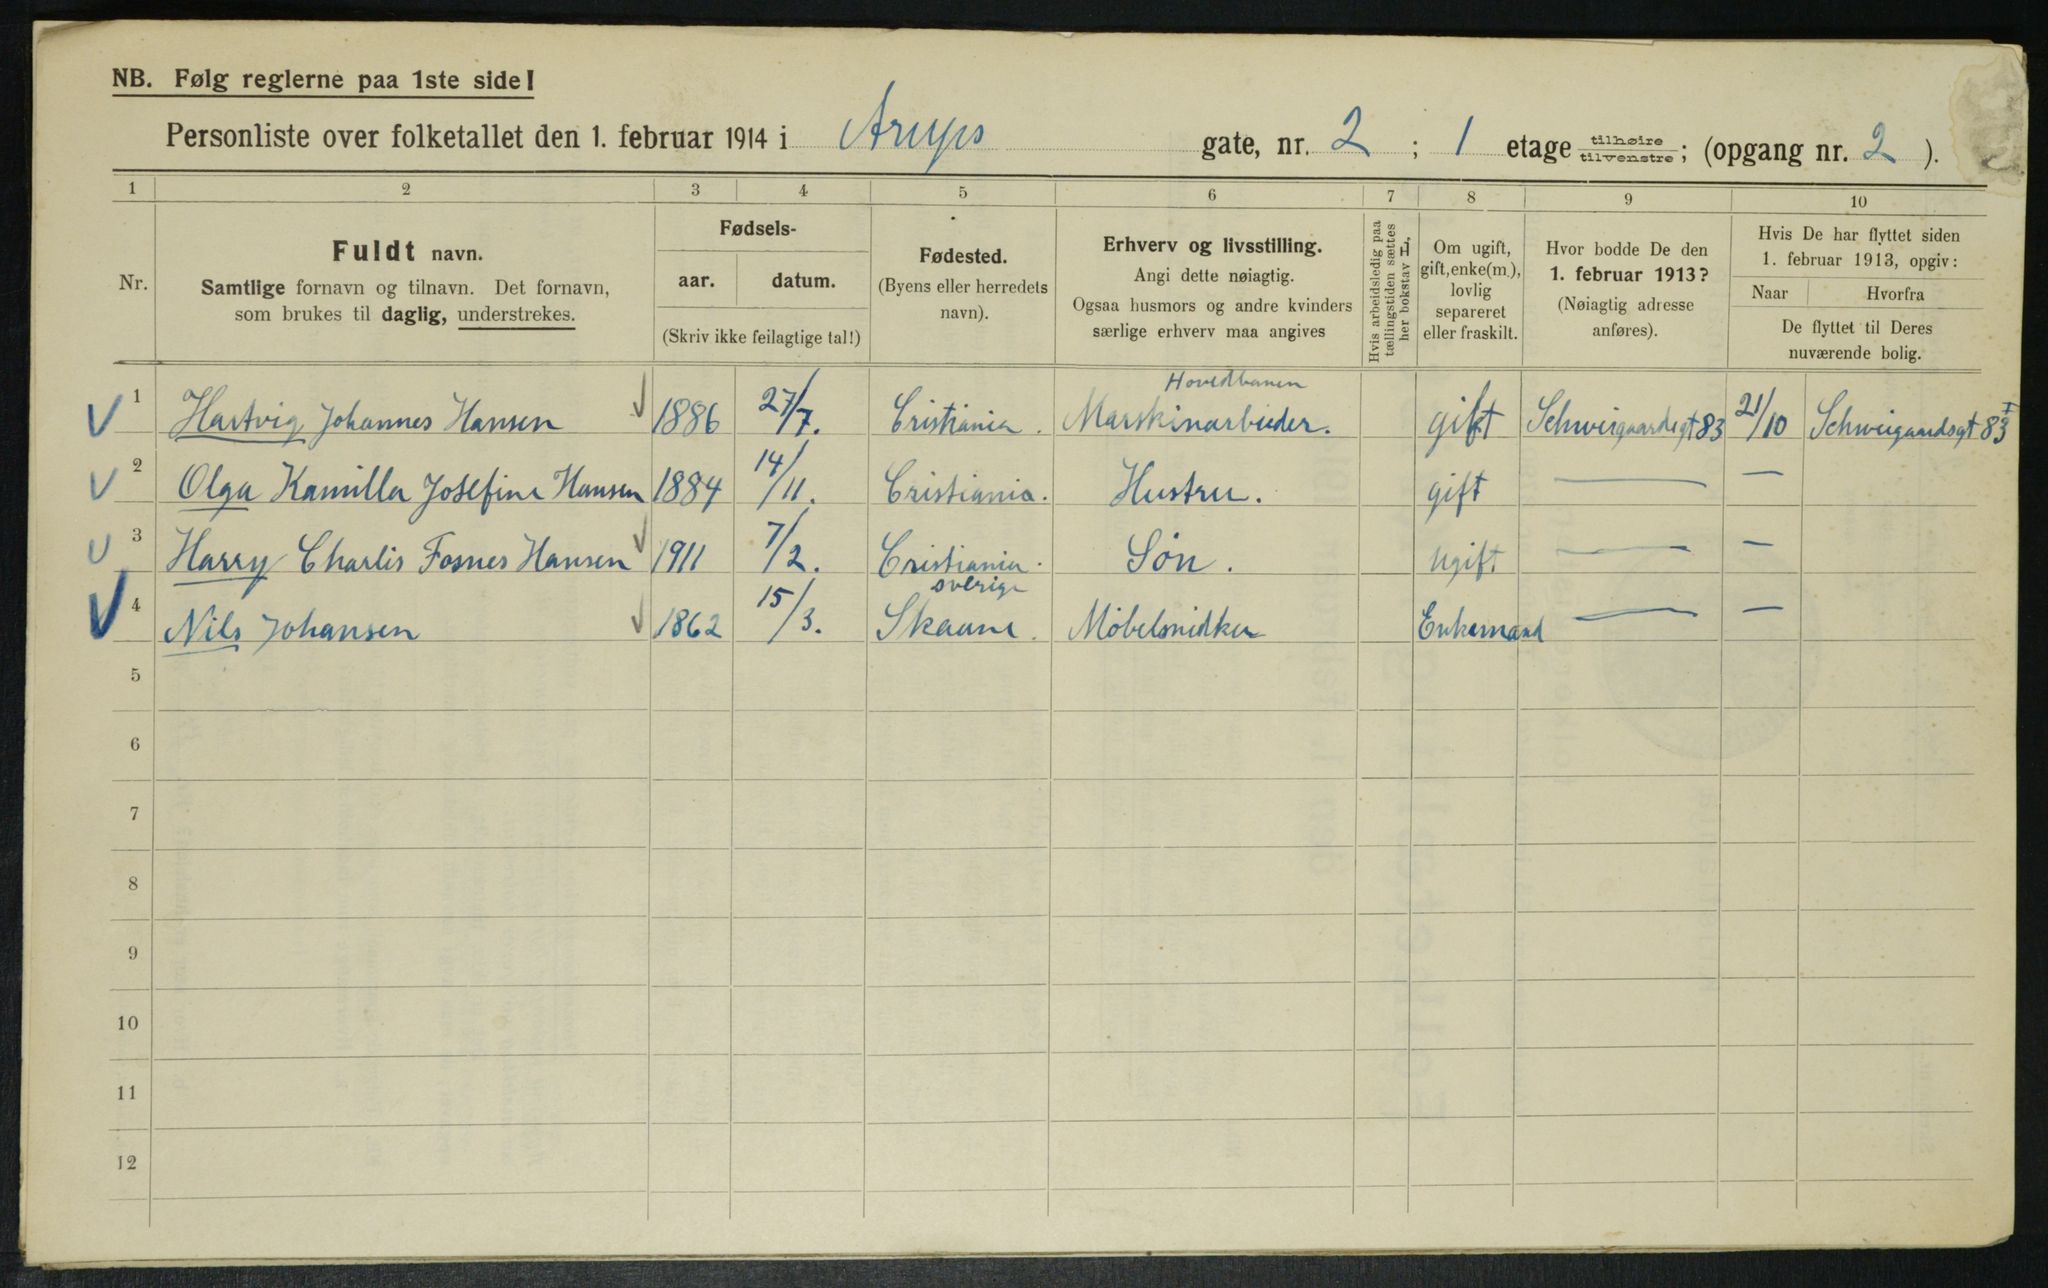 NB. Følg reglerne paa 1ste side!
Personliste over folketallet den 1. februar 1914 i Arups gate, nr. 2 ; 1 etage tilhøire / tilvenstre ; (opgang nr. 2 ).
1 2 3 4 5 6 7 8 9 10
Nr.
Fuldt navn.
Samtlige fornavn og tilnavn. Det fornavn,
som brukes til daglig, understrekes.
Fødsels-
aar. datum.
(Skriv ikke feilagtige tal!)
Fødested.
(Byens eller herredets
navn).
Erhverv og livsstilling.
Angi dette nøiagtig.
Ogsaa husmors og andre kvinders
særlige erhverv maa angives
Hvis arbeidsledig paa
tællingstiden sættes
her bokstav H,
Om ugift,
gift, enke(m.),
lovlig
separeret
eller fraskilt.
Hvor bodde De den
1. februar 1913?
(Nøiagtig adresse
anføres).
Hvis De har flyttet siden
1. februar 1913, opgiv:
Naar Hvorfra
De flyttet til Deres
nuværende bolig.
Hovedbanen
1 Hartvig Johannes Hansen 1886 27/7. Cristiania. Marskinarbeider. gift Schweigaardsgt 83 21/10 Schweigaardsgt 83 I
2 Olga Kamilla Josefine Hansen 1884 14/11. Cristiania. Hustru. gift — —
3 Harry Charlis Fosnes Hansen 1911 7/2. Cristiania. Søn. ugift. — —
sverige
4 Nils Johansen 1862 15/3. Skaane. Møbelsnidker Enkemand — —
5
6
7
8
9
10
11
12